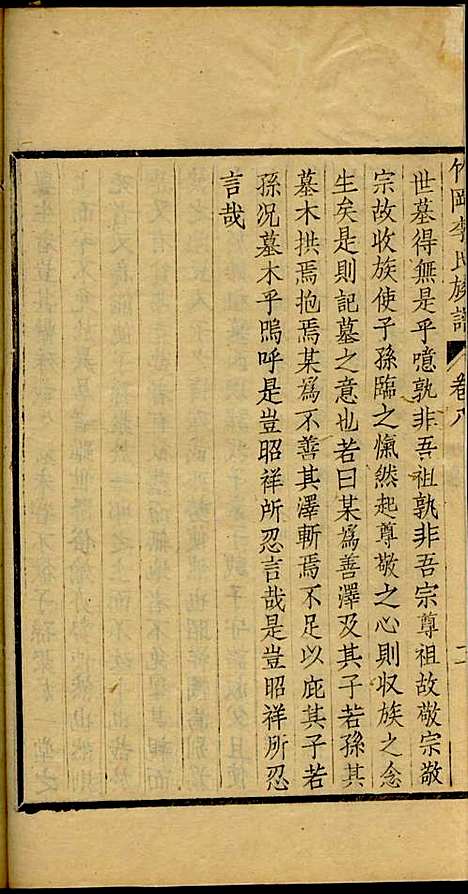 竹岡李氏族譜 卷八
世墓得無是乎噫孰非吾祖孰非吾宗尊祖故敬宗敬
宗故收族使子孫臨之愾然起尊敬之心則収族之念
生矣是則記墓之意也若曰某爲善澤及其子若孫其
墓木拱焉抱焉某爲不善其澤斬焉不足以庇其子若
孫况墓木乎嗚呼是豈昭祥所忍言哉是豈昭祥所忍
言哉